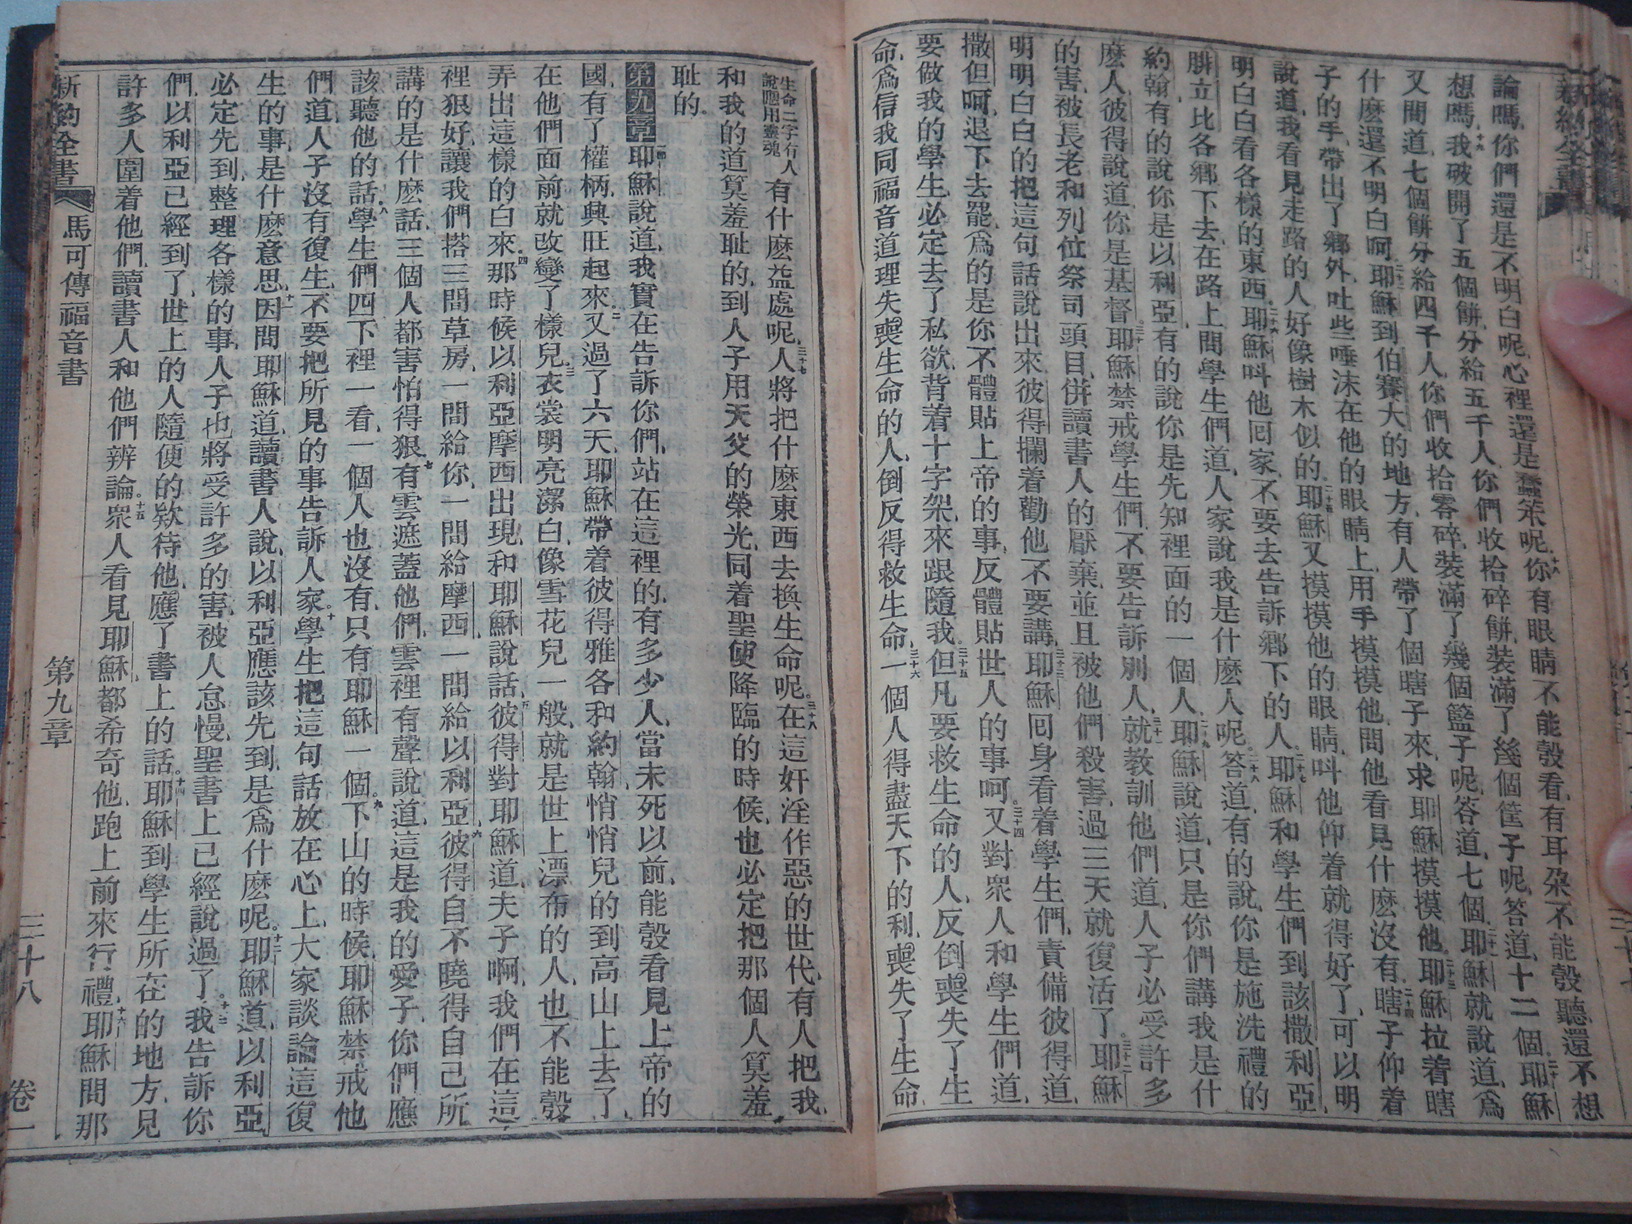 論嗎、你們還是不明白呢、心裡還是蠢笨呢、十八你有眼睛不能彀看、有耳朶不能彀聽、還不想
想嗎、十九我破開了五個餅、分給五千人、你們收拾碎餅、裝滿了幾個筐子呢、答道、十二個、耶穌
又問道、七個餅分給四千人、你們收拾零碎、裝滿了幾個籃子呢、答道、七個、耶穌就說道、爲
什麽還不明白呵、耶穌到伯賽大的地方、有人帶了個瞎子來、求耶穌摸摸他、耶穌拉着瞎
子的手、帶出了鄉外、吐些唾沫在他的眼睛上、用手摸摸他、問他看見什麽沒有、瞎子仰着
說道、我看見走路的人好像樹木似的、耶穌又摸摸他的眼睛、呌他仰着、就得好了、可以明
明白白看各樣的東西、耶穌呌他囘家、不要去告訴鄉下的人、耶穌和學生們到該撒利亞
腓立比各鄉下去、在路上問學生們道、人家說我是什麽人呢、答道、有的說你是施洗禮的
約翰、有的說你是以利亞、有的說你是先知裡面的一個人、耶穌說道、只是你們講我是什
麽人、彼得說道、你是基督、耶穌禁戒學生們、不要告訴別人、就教訓他們道、人子必受許多
的害、被長老和列位祭司頭目、併讀書人的厭棄、並且被他們殺害、過三天就復活了、耶穌
明明白白的把這句話說出來、彼得攔着勸他不要講、耶穌囘身看着學生們、責備彼得道、
撒但呵、退下去罷、爲的是你不體貼上帝的事、反體貼世人的事呵、三十四又對衆人和學生們道、
要做我的學生、必定去了私欲、背着十字架、來跟隨我、三十五但凡要救生命的人、反倒喪失了生
命、爲信我同福音道理失喪生命的人、倒反得救生命、三十六一個人得盡天下的利、喪失了生命、
生命二字有人說應用靈魂有什麽益處呢、三十七人將把什麽東西去換生命呢、三十八在這奸淫作惡的世代、有人把我
和我的道算羞耻的、到人子用天父的榮光、同着聖使降臨的時候、也必定把那個人算羞
耻的、
第九章一耶穌說道、我實在告訴你們、站在這裡的、有多少人、當未死以前、能彀看見上帝的
國、有了權柄、興旺起來、二又過了六天、耶穌帶着彼得雅各和約翰、悄悄兒的到高山上去了、
在他們面前就改變了樣兒、三衣裳明亮潔白、像雪花兒一般、就是世上漂布的人、也不能彀
弄出這樣的白來、四那時候以利亞摩西出現、和耶穌說話、五彼得對耶穌道、夫子啊、我們在這
裡狠好、讓我們搭三間草房、一間給你、一間給摩西、一間給以利亞、六彼得自不曉得自己所
講的是什麽話、三個人都害怕得狠、七有雲遮蓋他們、雲裡有聲說道、這是我的愛子、你們應
該聽他的話、八學生們四下裡一看、一個人也沒有、只有耶穌一個、九下山的時候、耶穌禁戒他
們道、人子沒有復生、不要把所見的事告訴人家、十學生把這句話放在心上、大家談論這復
生的事、是什麽意思、十一因問耶穌道、讀書人說、以利亞應該先到、是爲什麽呢、十二耶穌道、以利亞
必定先到、整理各樣的事、人子也將受許多的害、被人怠慢、聖書上已經說過了、十三我告訴你
們、以利亞已經到了、世上的人隨便的欵待他、應了書上的話、十四耶穌到學生所在的地方、見
許多人圍着他們、讀書人和他們辨論、十五衆人看見耶穌、都希奇他、跑上前來行禮、十六耶穌問那
新約全書 馬可傳福音書 第九章 三十八 卷一